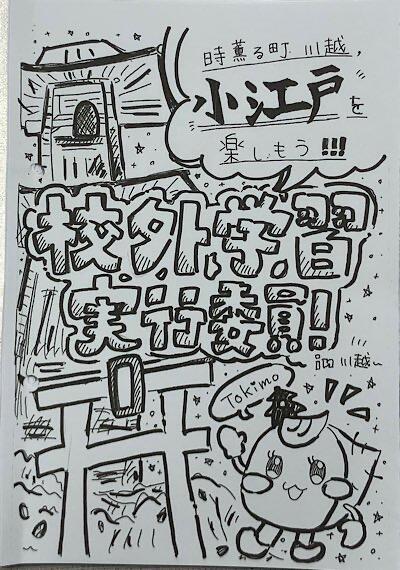 時薫る町 川越,
小江戸を
楽しもう!!!
校外学習
実行委員!
in川越
Tokimo